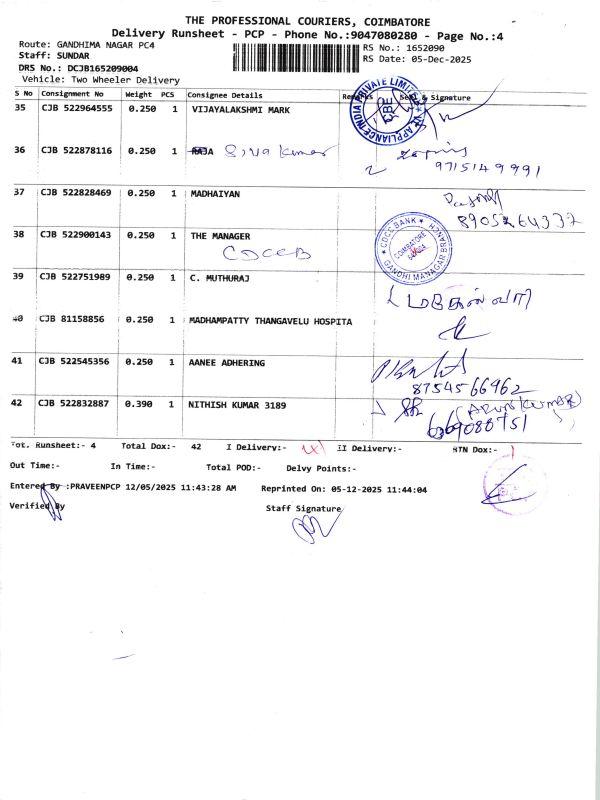 THE PROFESSIONAL COURIERS, COIMBATORE
Delivery Runsheet - PCP - Phone No.:9047080280 - Page No.:4
Route: GANDHIMA NAGAR PC4
RS No.: 1652090
Staff: SUNDAR
RS Date: 05-Dec-2025
DRS No.: DCJB165209004
Vehicle: Two Wheeler Delivery
S No Consignment No Weight PCS Consignee Details Seal & Signature
35 CJB 522964555 0.250 1 VIJAYALAKSHMI MARK
INDIA PRIVATE LIMITED
CBE
36 CJB 522878116 0.250 1 RAJA Siva Kumar
9715149991
37 CJB 522828469 0.250 1 MADHAIYAN
8905264337
38 CJB 522900143 0.250 1 THE MANAGER
CDCCB
CDCC BANK
COIMBATORE
GANDHI MANAGAR BRANCH
39 CJB 522751989 0.250 1 C. MUTHURAJ
40 CJB 81158856 0.250 1 MADHAMPATTY THANGAVELU HOSPITA
41 CJB 522545356 0.250 1 AANEE ADHERING
8754566962
42 CJB 522832887 0.390 1 NITHISH KUMAR 3189
(ARUN KUMAR)
6369088751
Tot. Runsheet:- 4 Total Dox:- 42 I Delivery:- II Delivery:- RTN Dox:-
Out Time:- In Time:- Total POD:- Delvy Points:-
Entered By :PRAVEENPCP 12/05/2025 11:43:28 AM Reprinted On: 05-12-2025 11:44:04
Verified By
Staff Signature